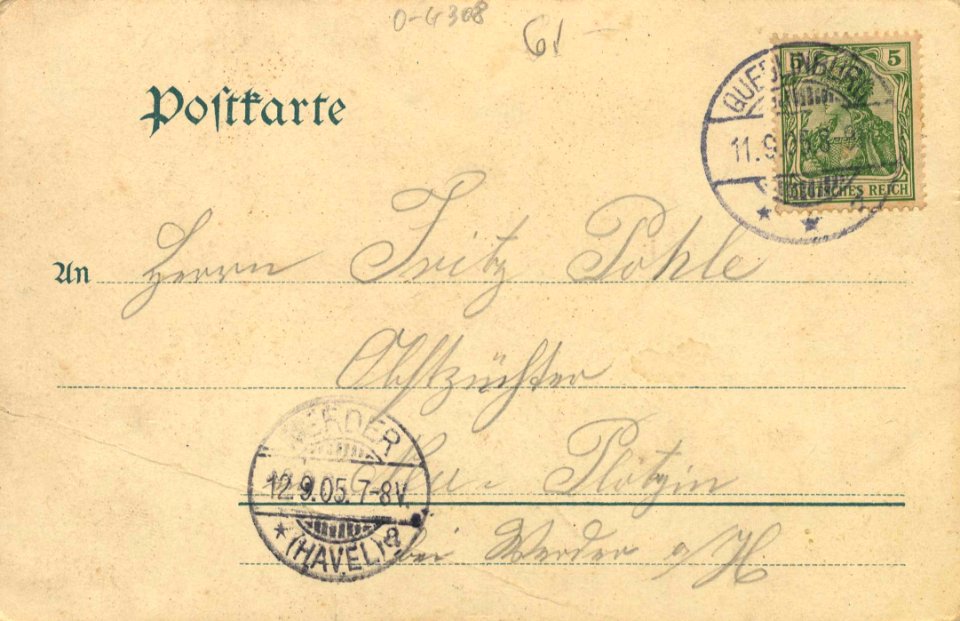 0-4308
61
Postkarte
5 5
DEUTSCHES REICH
QUEDLINBURG
11.9.05.8-
An Herrn Fritz Pohle
Obstzüchter
Plötzin
bei Werder a/H.
WERDER
12.9.05.7-8V.
* (HAVEL) a